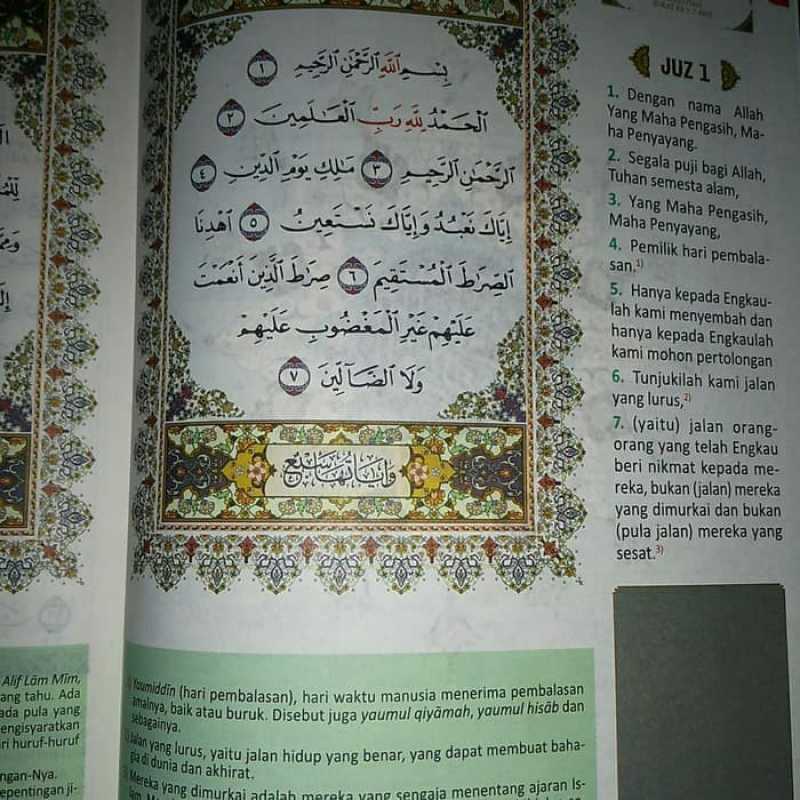 بِسْمِ اللَّهِ الرَّحْمَٰنِ الرَّحِيمِ ١
الْحَمْدُ لِلَّهِ رَبِّ الْعَالَمِينَ ٢
الرَّحْمَٰنِ الرَّحِيمِ ٣ مَالِكِ يَوْمِ الدِّينِ ٤
إِيَّاكَ نَعْبُدُ وَإِيَّاكَ نَسْتَعِينُ ٥ اهْدِنَا
الصِّرَاطَ الْمُسْتَقِيمَ ٦ صِرَاطَ الَّذِينَ أَنْعَمْتَ
عَلَيْهِمْ غَيْرِ الْمَغْضُوبِ عَلَيْهِمْ
وَلَا الضَّالِّينَ ٧
وَآيَاتُهَا سَبْعٌ
JUZ 1
1. Dengan nama Allah
Yang Maha Pengasih, Ma-
ha Penyayang.
2. Segala puji bagi Allah,
Tuhan semesta alam,
3. Yang Maha Pengasih,
Maha Penyayang,
4. Pemilik hari pembala-
san.1)
5. Hanya kepada Engkau-
lah kami menyembah dan
hanya kepada Engkaulah
kami mohon pertolongan
6. Tunjukilah kami jalan
yang lurus,2)
7. (yaitu) jalan orang-
orang yang telah Engkau
beri nikmat kepada me-
reka, bukan (jalan) mereka
yang dimurkai dan bukan
(pula jalan) mereka yang
sesat.3)
Yaumiddīn (hari pembalasan), hari waktu manusia menerima pembalasan
amalnya, baik atau buruk. Disebut juga yaumul qiyāmah, yaumul hisāb dan
sebagainya.
Jalan yang lurus, yaitu jalan hidup yang benar, yang dapat membuat baha-
gia di dunia dan akhirat.
Mereka yang dimurkai adalah mereka yang sengaja menentang ajaran Is-
Alif Lām Mīm,
ang tahu. Ada
ada pula yang
engisyaratkan
ri huruf-huruf
ngan-Nya.
epentingan ji-